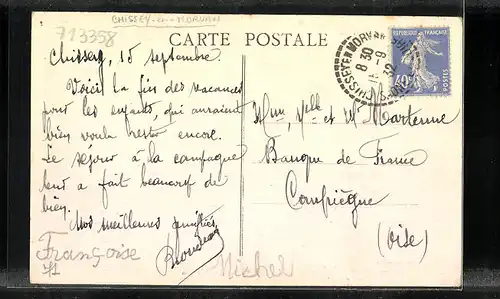 CHISSEY-en-MORVAN
713358
CARTE POSTALE
RÉPUBLIQUE FRANÇAISE
40c
POSTES
CHISSEY EN MORVAN
8 30
15 -9
32
Chissey, 15 septembre.
Voici la fin des vacances
pour les enfants, qui auraient
bien voulu rester encore.
Le séjour à la campagne
leur a fait beaucoup de
bien.
Nos meilleures amitiés
Françoise
Michel
Mme, Melle et Mr Martenne
Banque de France
Compiègne
(Oise)